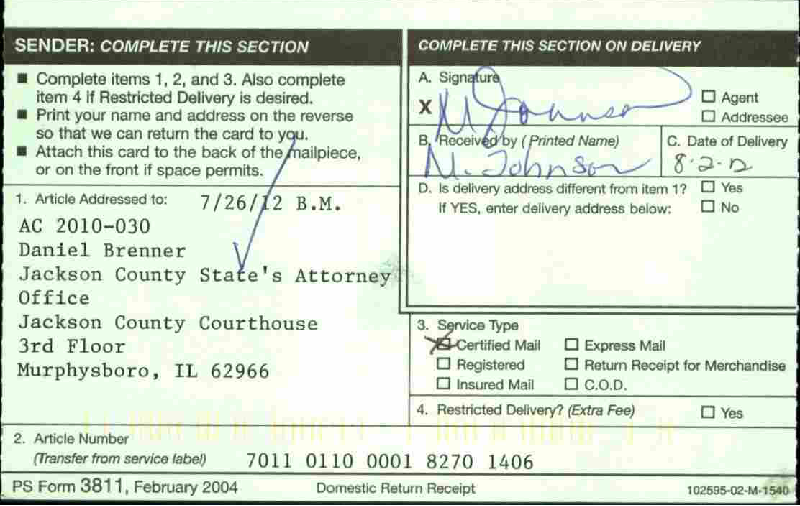 SENDER: COMPLETE THIS SECTION
■ Complete items 1, 2, and 3. Also complete
item 4 if Restricted Delivery is desired.
■ Print your name and address on the reverse
so that we can return the card to you.
■ Attach this card to the back of the mailpiece,
or on the front if space permits.
1. Article Addressed to: 7/26/12 B.M.
AC 2010-030
Daniel Brenner
Jackson County State's Attorney
Office
Jackson County Courthouse
3rd Floor
Murphysboro, IL 62966
2. Article Number
(Transfer from service label) 7011 0110 0001 8270 1406
COMPLETE THIS SECTION ON DELIVERY
A. Signature
X M Johnson
☐ Agent
☐ Addressee
B. Received by (Printed Name)
M. Johnson
C. Date of Delivery
8-2-12
D. Is delivery address different from item 1? ☐ Yes
If YES, enter delivery address below: ☐ No
3. Service Type
☒ Certified Mail ☐ Express Mail
☐ Registered ☐ Return Receipt for Merchandise
☐ Insured Mail ☐ C.O.D.
4. Restricted Delivery? (Extra Fee) ☐ Yes
PS Form 3811, February 2004 Domestic Return Receipt 102595-02-M-1540